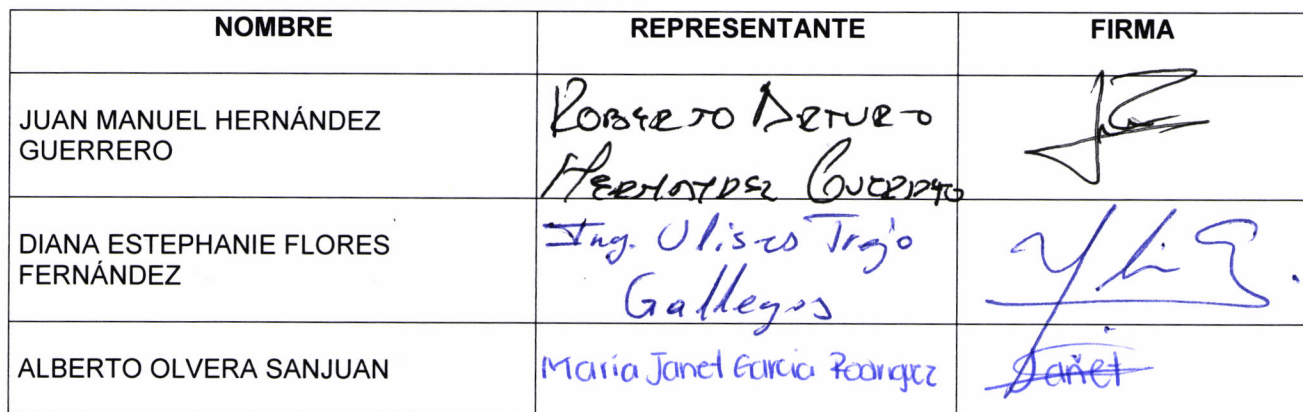 NOMBRE REPRESENTANTE FIRMA
JUAN MANUEL HERNÁNDEZ
GUERRERO
ROBERTO ARTURO
HERNANDEZ GUERRERO
DIANA ESTEPHANIE FLORES
FERNÁNDEZ
Ing. Ulises Trejo
Gallegos
ALBERTO OLVERA SANJUAN
María Janet Garcia Rodriguez
Janet